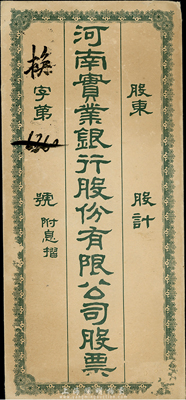 股東 股計
河南實業銀行股份有限公司股票
字第 號 附息摺